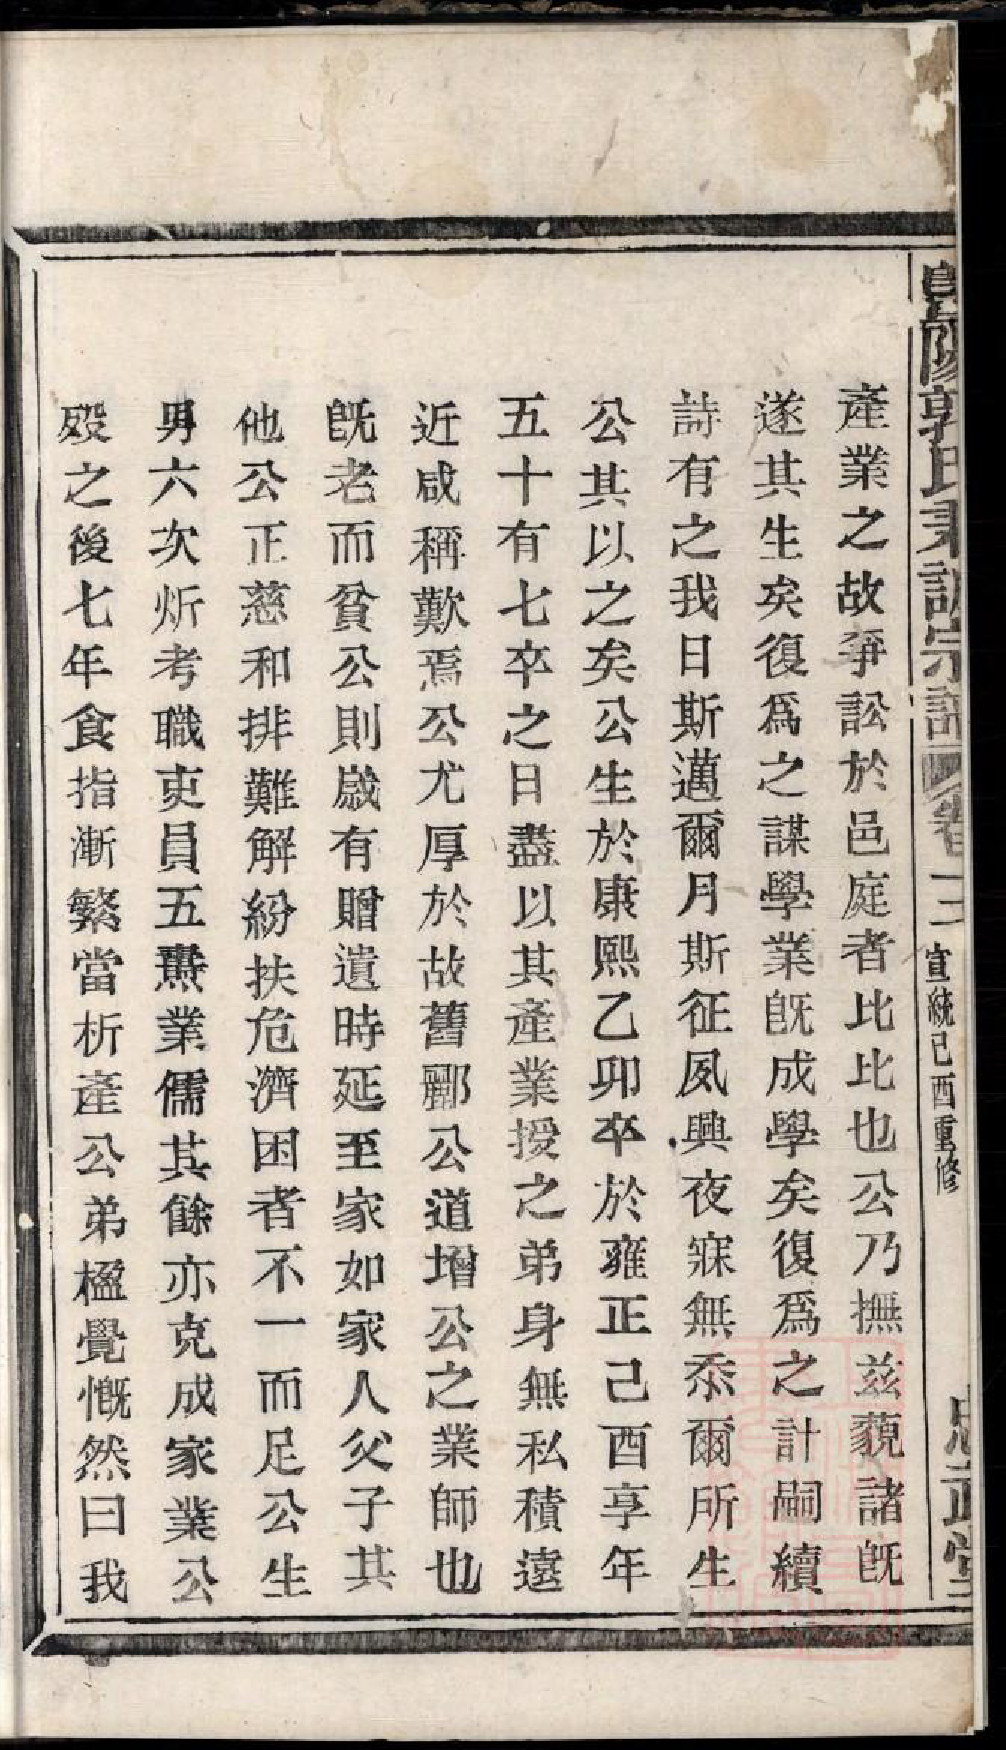 暨陽郭氏秉訓宗譜 卷三 宣統己酉重修
產業之故爭訟於邑庭者比比也公乃撫兹藐諸旣
遂其生矣復爲之謀學業旣成學矣復爲之計嗣續
詩有之我日斯邁爾月斯征夙興夜寐無忝爾所生
公其以之矣公生於康熙乙卯卒於雍正己酉享年
五十有七卒之日盡以其產業授之弟身無私積遠
近咸稱歎焉公尤厚於故舊酈公道增公之業師也
旣老而貧公則歲有贈遺時延至家如家人父子其
他公正慈和排難解紛扶危濟困者不一而足公生
男六次炘考職吏員五燾業儒其餘亦克成家業公
歿之後七年食指漸繁當析產公弟楹覺慨然曰我